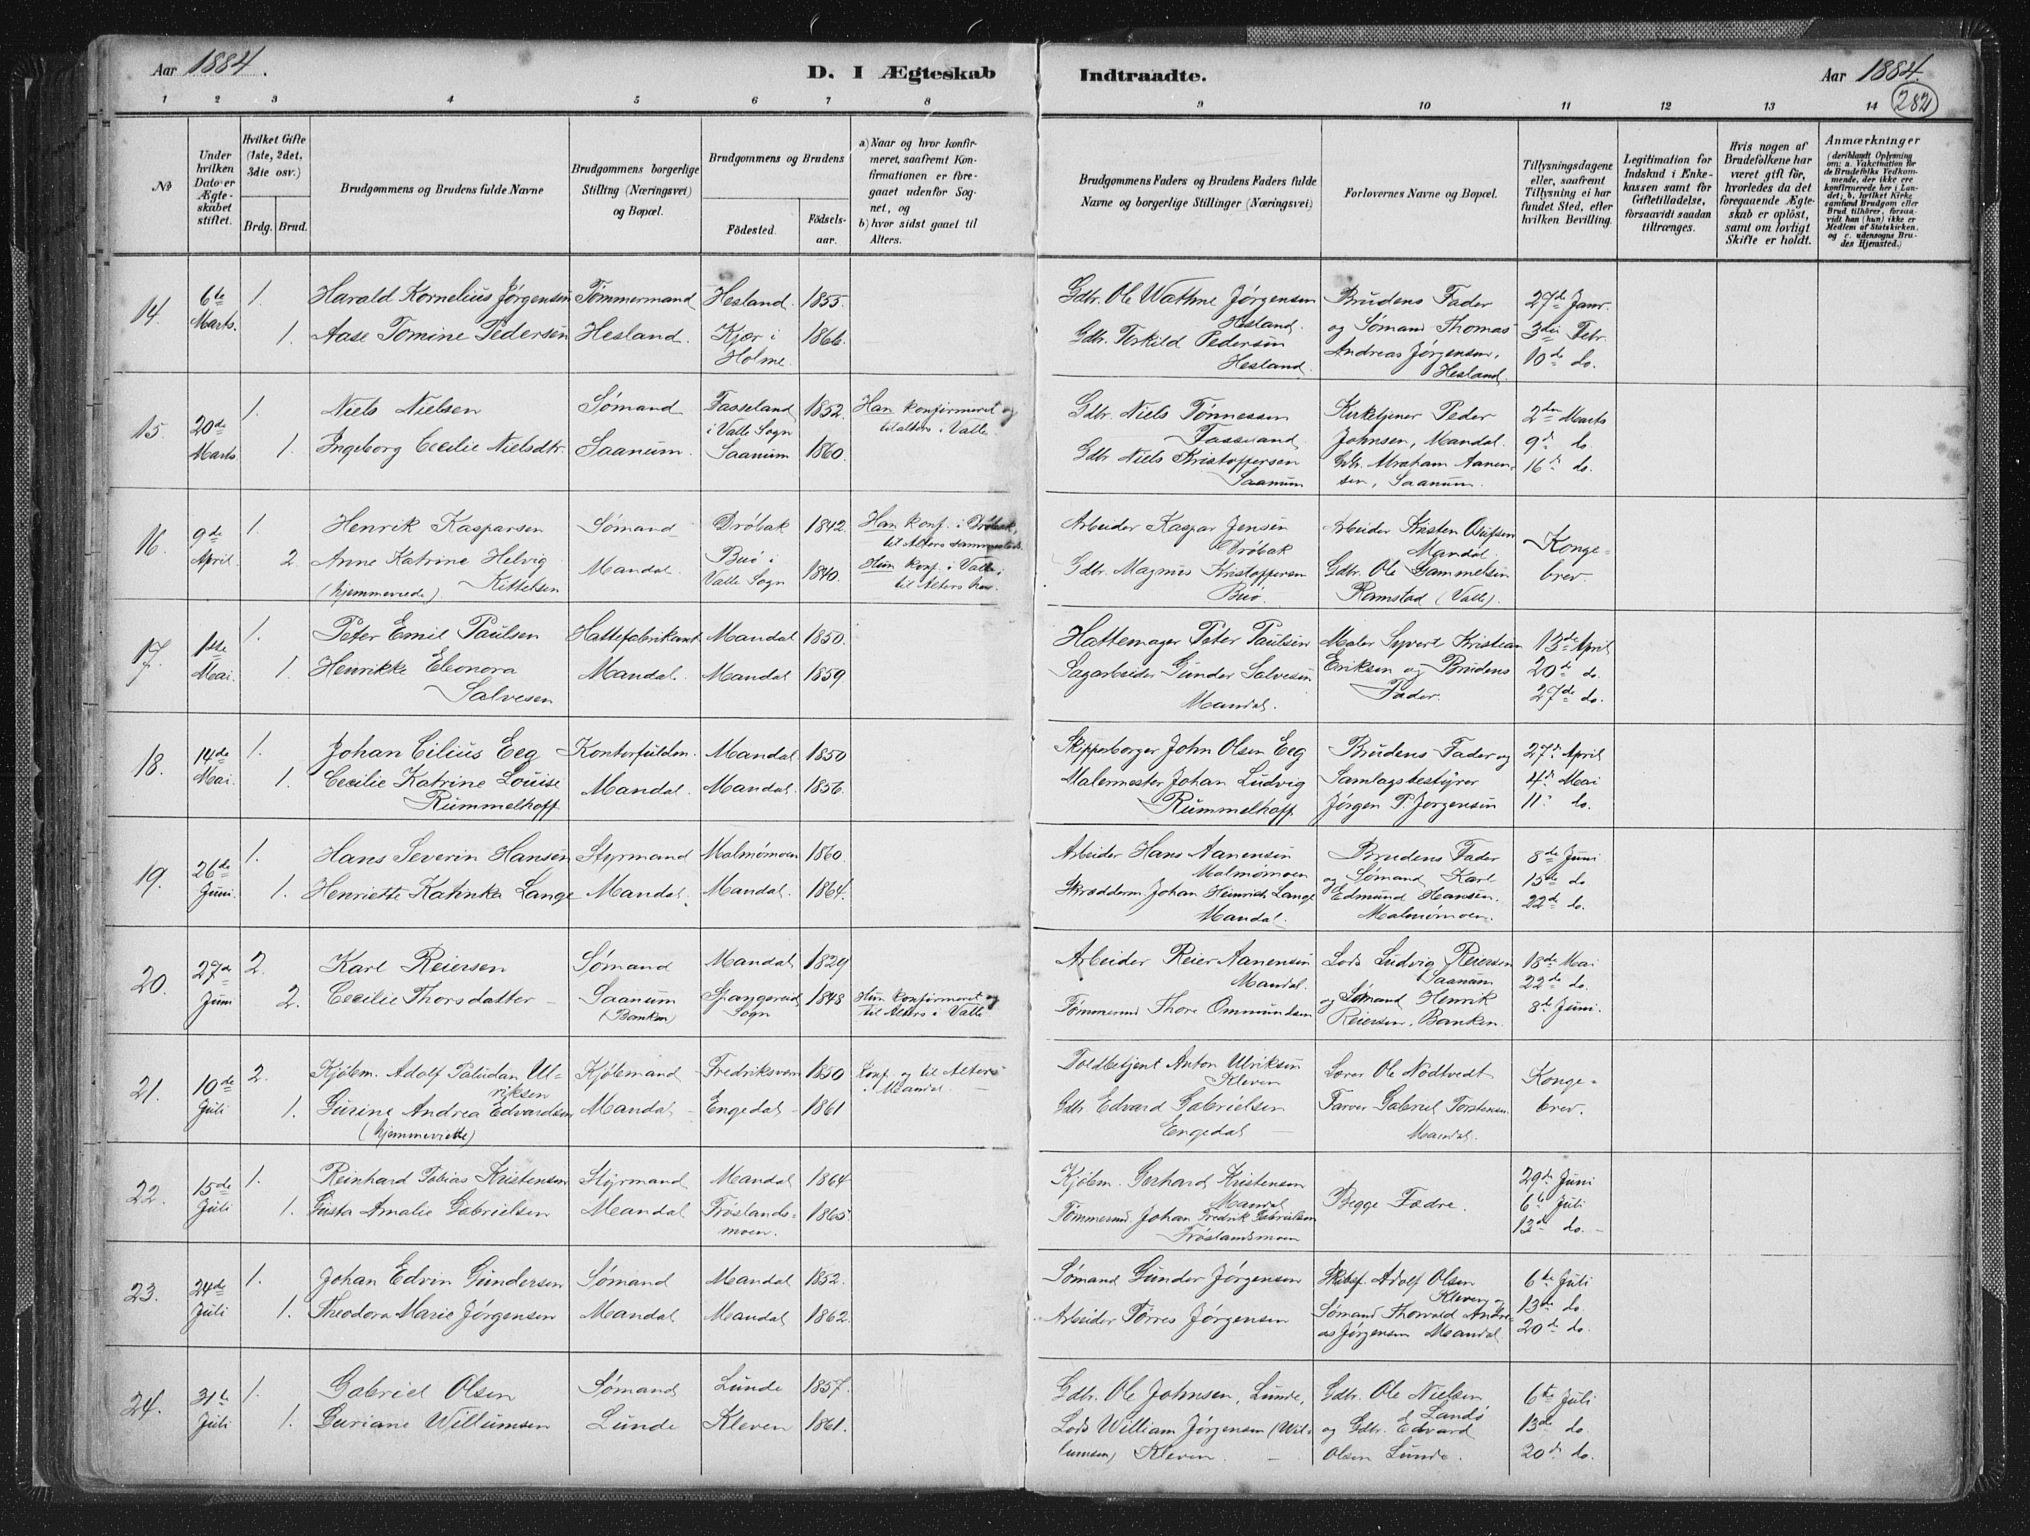 Aar 1884.
D. I Ægteskab
Indtraadte.
Aar 1884.
282
1 2 3 4 5 6 7 8
9 10 11 12 13 14
№
Under hvilken Dato er Ægteskabet stiftet.
Hvilket Gifte (1ste, 2det, 3die osv.)
Brdg. Brud.
Brudgommens og Brudens fulde Navne
Brudgommens borgerlige Stilling (Næringsvei) og Bopæl.
Brudgommens og Brudens
Födested.
Födsels-aar.
a) Naar og hvor konfirmeret, saafremt Konfirmationen er foregaaet udenfor Sognet, og
b) hvor sidst gaaet til Alters.
Brudgommens Faders og Brudens Faders fulde Navne og borgerlige Stillinger (Næringsvei)
Forlovernes Navne og Bopæl.
Tillysningsdagene eller, saafremt Tillysning ei har fundet Sted, efter hvilken Bevilling.
Legitimation for Indskud i Enkekassen samt for Giftetilladelse, forsaavidt saadan tiltrænges.
Hvis nogen af Brudefolkene har været gift för, hvorledes da det foregaaende Ægteskab er oplöst, samt om lovligt Skifte er holdt.
Anmærkninger
(deriblandt Oplysning om: a. Vakcination for de Brudefolks Vedkommende, der ikke ere konfirmerede her i Landet; b. hvilket Kirkesamfund Brudgom eller Brud tilhörer, forsaavidt han (hun) ikke er Medlem af Statskirken, og c. udensogns Brudes Hjemsted.)
14. 6te Marts. 1. Harald Kornelius Jørgensen Tømmermand Hesland. 1855.
1. Aase Tomine Pedersen Hesland. Kjær i Holme. 1866.
Gdbr. Ole Wathne Jørgensen Hesland.
Gdbr. Torkild Pedersen Hesland.
Brudens Fader og Sømand Thomas Andreas Jørgensen, Hesland.
27de Janr. 3die Febr. 10de do.
15. 20de Marts 1. Niels Nielsen Sømand Fasseland i Valle Sogn 1852. Han konfirmeret og til alters i Valle.
1. Ingeborg Cecilie Nielsdtr. Saanum. Saanum 1860.
Gdbr. Niels Tønnessen Fasseland.
Gdbr. Niels Kristoffersen Saanum
Kirketjener Peder Johnsen, Mandal.
Gdbr. Abraham Aanensen, Saanum.
2den Marts 9d do. 16d do.
16. 9de April. 1. Henrik Kasparsen Sømand Drøbak 1842. Han konf. i Drøbak, til Alters sammesteds.
2. Anne Katrine Helvig Kittelsen (hjemmeviede) Mandal. Buø i Valle Sogn 1840. Hun konf. i Valle, til Alters her.
Arbeider Kaspar Jensen Drøbak
Gdbr. Magnus Kristoffersen Buø.
Arbeider Kristen Olufsen Mandal.
Gdbr. Ole Gammelsen Ramstad (Valle).
Kongebrev.
17. 1ste Mai. 1. Peter Emil Paulsen Hattefabrikant Mandal 1850.
1. Henrikke Eleonora Salvesen Mandal. Mandal 1859
Hattemager Peter Paulsen
Sagarbeider Gunder Salvesen Mandal.
Maler Syvert Kristian Eriksen og Brudens Fader.
13de April 20de do. 27de do.
18. 14de Mai. 1. Johan Cilius Eeg Kontorfuldm. Mandal 1850
1. Cecilie Katrine Louise Rummelhoff Mandal. Mandal. 1856.
Skipperborger John Olsen Eeg
Malermester Johan Ludvig Rummelhoff.
Brudens Fader og Samlagsbestyrer Jørgen P. Jørgensen
27d April 4de Mai 11. do.
19. 26de Juni. 1. Hans Severin Hansen Styrmand Malmømoen 1860.
1. Henriette Katinka Lange Mandal. Mandal. 1864.
Arbeider Hans Aanensen Malmømoen
Skrædderm. Johan Heinrich Lange Mandal.
Brudens Fader og Sømand Karl Edmund Hansen. Malmømoen.
8de Juni 15de do 22de do.
20. 27de Juni 2. Karl Reiersen Sømand Mandal 1829
2. Cecilie Thorsdatter Saanum (Banken) Spangereid Sogn 1848 Hun konfirmeret og til Alters i Valle
Arbeider Reier Aanensen Mandal.
Tømmermd Thore Ommundsen
Lods Ludvig Reiersen Saanum og Sømand Henrik Reiersen, Banken.
18de Mai 22de do. 8de Juni.
21. 10de Juli 2. Kjøbm. Adolf Paludan Ulriksen Kjøbmand Fredriksværn 1850 Konf. og til Alters i Mandal.
1. Gurine Andrea Edvardsen (hjemmeviede) Mandal Engedal 1861
Toldbetjent Anton Ulriksen Kleven
Gdbr. Edvard Gabrielsen Engedal
Lærer Ole Nödtvedt
Farver Gabriel Torstensen Mandal.
Kongebrev.
22. 15de Juli 1. Reinhard Tobias Kristensen Styrmand Mandal 1864
1. Gusta Amalie Gabrielsen Mandal Frøslandsmoen. 1865.
Kjøbm. Gerhard Kristensen Mandal
Tømmermd. Johan Fredrik Gabrielsen Frøslandsmoen
Begge Fædre.
29de Juni 6te Juli 13de do.
23. 24de Juli 1. Johan Edvin Gundersen Sømand Mandal 1852.
1. Theodora Marie Jørgensen Mandal Mandal 1862.
Sømand Gunder Jørgensen
Arbeider Tørres Jørgensen
Adolf Olsen Kleven og Sømand Thorvald Andreas Jørgensen Mandal
6te Juli 13de do. 20de do.
24. 31te Juli 1. Gabriel Olsen Sømand Lunde 1857.
1. Guriane Willumsen Lunde Kleven 1861.
Gdbr. Ole Johnsen, Lunde.
Lods William Jørgensen (Willumsen) Kleven.
Gdbr. Ole Nielsen Landø og Gdbr. Edvard Olsen Lunde.
6te Juli 13de do 20de do.